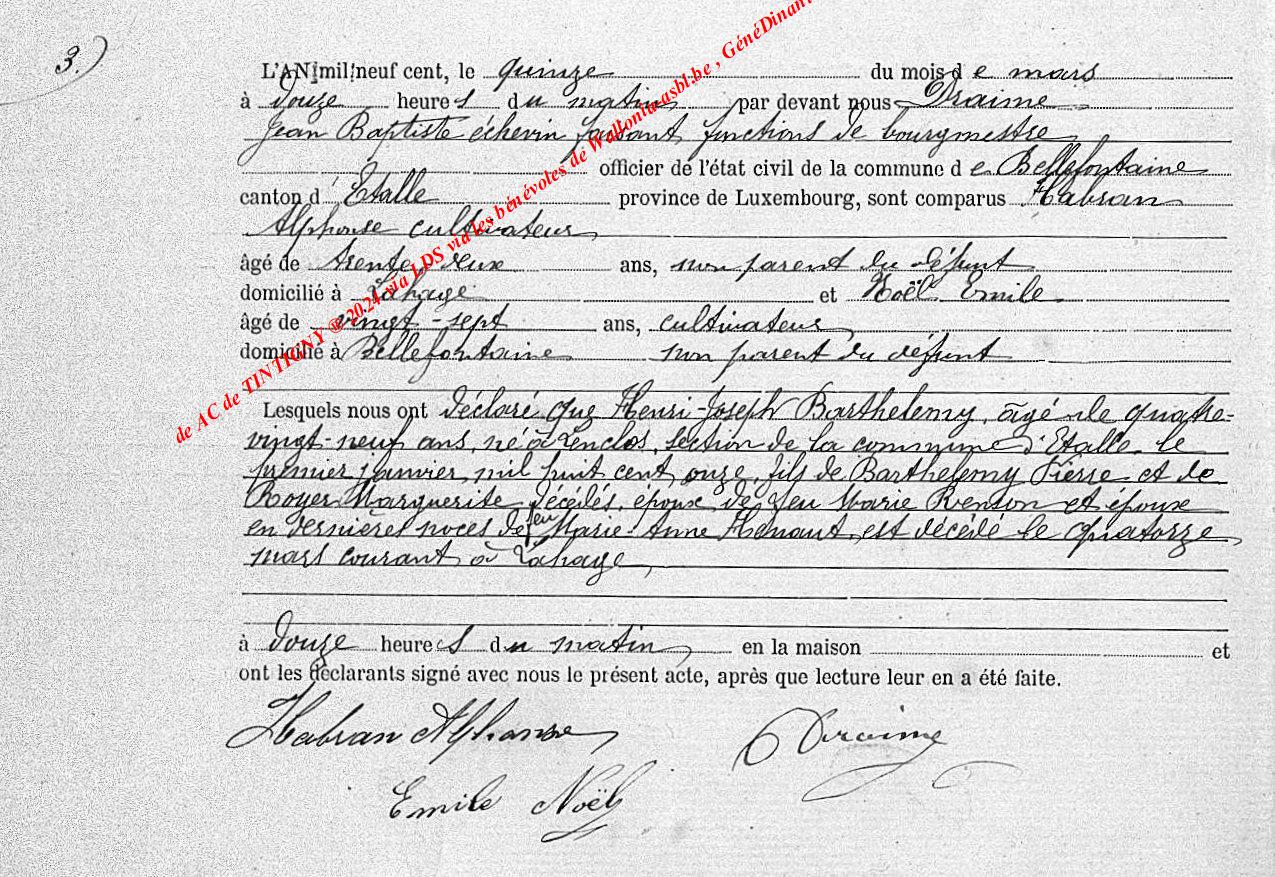 3.)
L'AN mil neuf cent, le quinze du mois de mars
à douze heures du matin par devant nous Draime
Jean Baptiste échevin faisant fonctions de bourgmestre
officier de l'état civil de la commune de Bellefontaine
canton d'Etalle province de Luxembourg, sont comparus Habran
Alphonse cultivateur
âgé de trente-deux ans, non parent du défunt
domicilié à Lahage et Noël Emile
âgé de vingt-sept ans, cultivateur
domicilié à Bellefontaine non parent du défunt
Lesquels nous ont déclaré que Henri-Joseph Barthelemy, âgé de quatre-
vingt-neuf ans, né à Lenclos, section de la commune d'Etalle, le
premier janvier mil huit cent onze, fils de Barthelemy Pierre et de
Royer Marguerite décédés, époux de feu Marie Renson et époux
en dernières noces de feu Marie-Anne Henaut, est décédé le quatorze
mars courant à Lahage,
à douze heures du matin, en la maison et
ont les déclarants signé avec nous le présent acte, après que lecture leur en a été faite.
Habran Alphonse
Draime
Emile Noël
de AC de TINTIGNY ® 2024 via LDS via les bénévoles de Wallonia asbl.be , GénéDinant